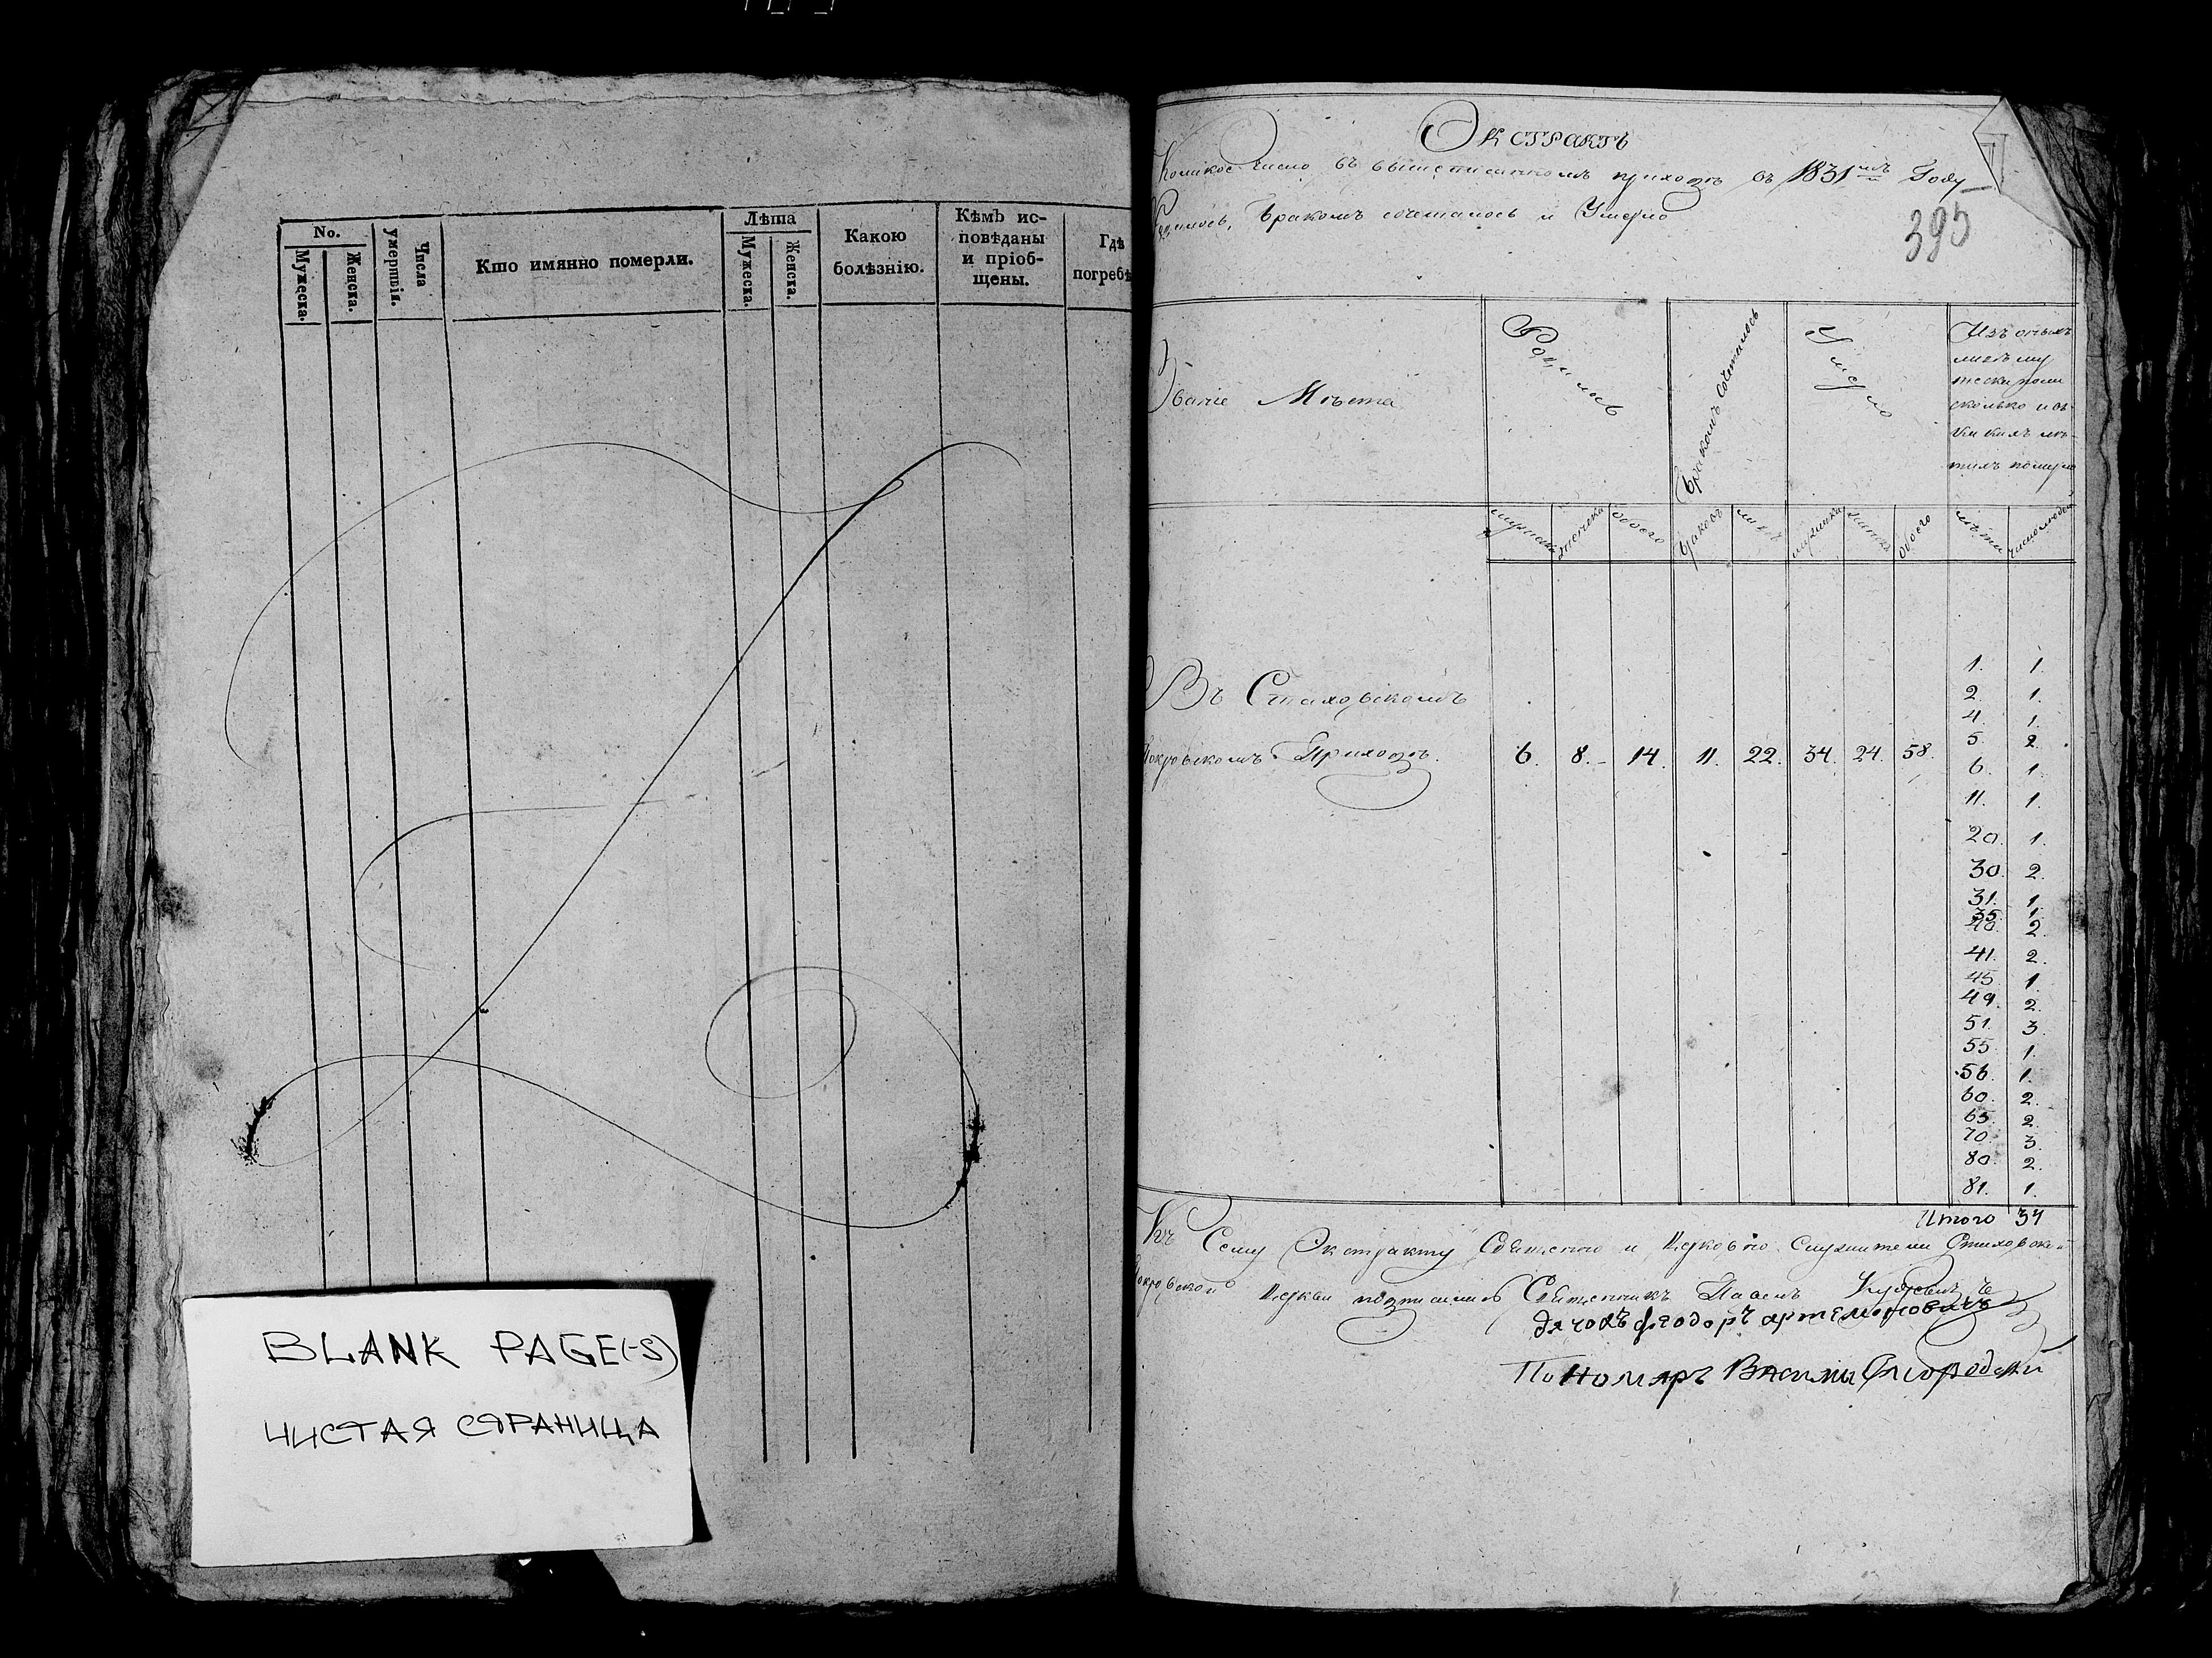 No.
Мужеска.
Женска.
Числа умертвія.
Кто имянно померли.
Лѣта
Мужеска.
Женска.
Какою
болѣзнію.
Кѣмъ ис-
повѣданы
и пріоб-
щены.
Гдѣ
погребѣ
BLANK PAGE(-S)
ЧИСТАЯ СТРАНИЦА
Экстрактъ
Коликое число въ вышеписанномъ приходѣ въ 1831мъ Году
Родилось, Бракомъ сочеталось и Умерло
395
Званіе Мѣста
Родилось
Бракомъ Сочеталось
Умерло
мужеска
женска
обоего
браковъ
лицъ
мужеска
женска
обоего
лѣта
число людей
Въ Стаховскомъ
Покровскомъ Приходѣ. 6. 8. 14. 11. 22. 34. 24. 58.
1. 1.
2. 1.
4. 1.
5. 2.
6. 1.
11. 1.
20. 1.
30. 2.
31. 1.
35. 1.
40. 2.
41. 2.
45. 1.
49. 2.
51. 3.
55. 1.
56. 1.
60. 2.
65. 2.
70. 3.
80. 2.
81. 1.
Итого 34
Къ Сему Экстракту Священно и Церковно служители Стаховской
Покровской Церкви подписались Священникъ Павелъ
дячокъ феодоръ артемоновичъ
Пономаръ Василий